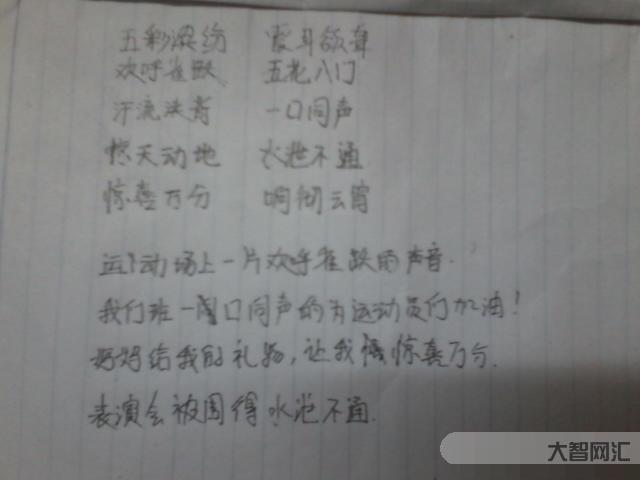 五彩缤纷 震耳欲聋
欢呼雀跃 五花八门
汗流浃背 一口同声
惊天动地 水泄不通
惊喜万分 响彻云霄
运动场上一片欢呼雀跃的声音.
我们班一口同声的为运动员们加油!
好好给我的礼物,让我惊喜万分.
表演会被围得水泄不通.
大智网汇